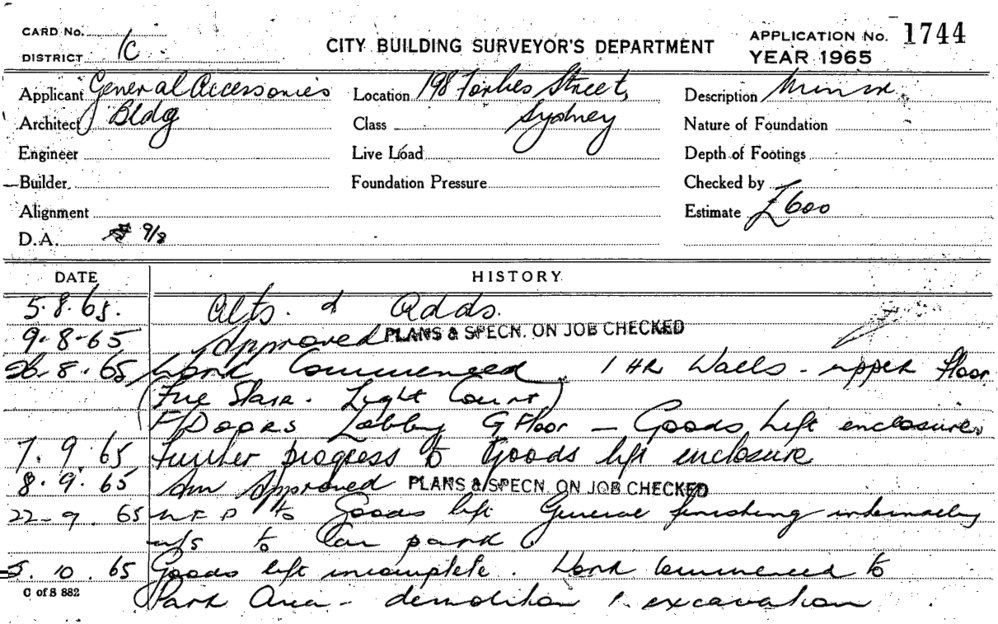 CARD No.
DISTRICT 1C
CITY BUILDING SURVEYOR'S DEPARTMENT
APPLICATION No. 1744
YEAR 1965
Applicant General Accessories
Location 198 Forbes Street,
Description Minor
Architect Bldg
Class Sydney
Nature of Foundation
Engineer
Live Load
Depth of Footings
Builder
Foundation Pressure
Checked by
Alignment
Estimate £600
D.A. 9/8
DATE HISTORY
5.8.65. Alts. & Adds.
9-8-65 Approved PLANS & SPECN. ON JOB CHECKED
26.8.65 Work Commenced 1 HR Walls - upper floor
(Fire Stair. Light Court)
F/Doors Lobby G Floor - Goods Lift enclosure
7.9.65 Further progress to Goods lift enclosure
8.9.65 Am Approved PLANS & SPECN. ON JOB CHECKED
22-9.65 to Goods lift General finishing internally
to Car park
5.10.65 Goods lift incomplete. Work commenced to
C of S 882 Park Area - demolition & excavation